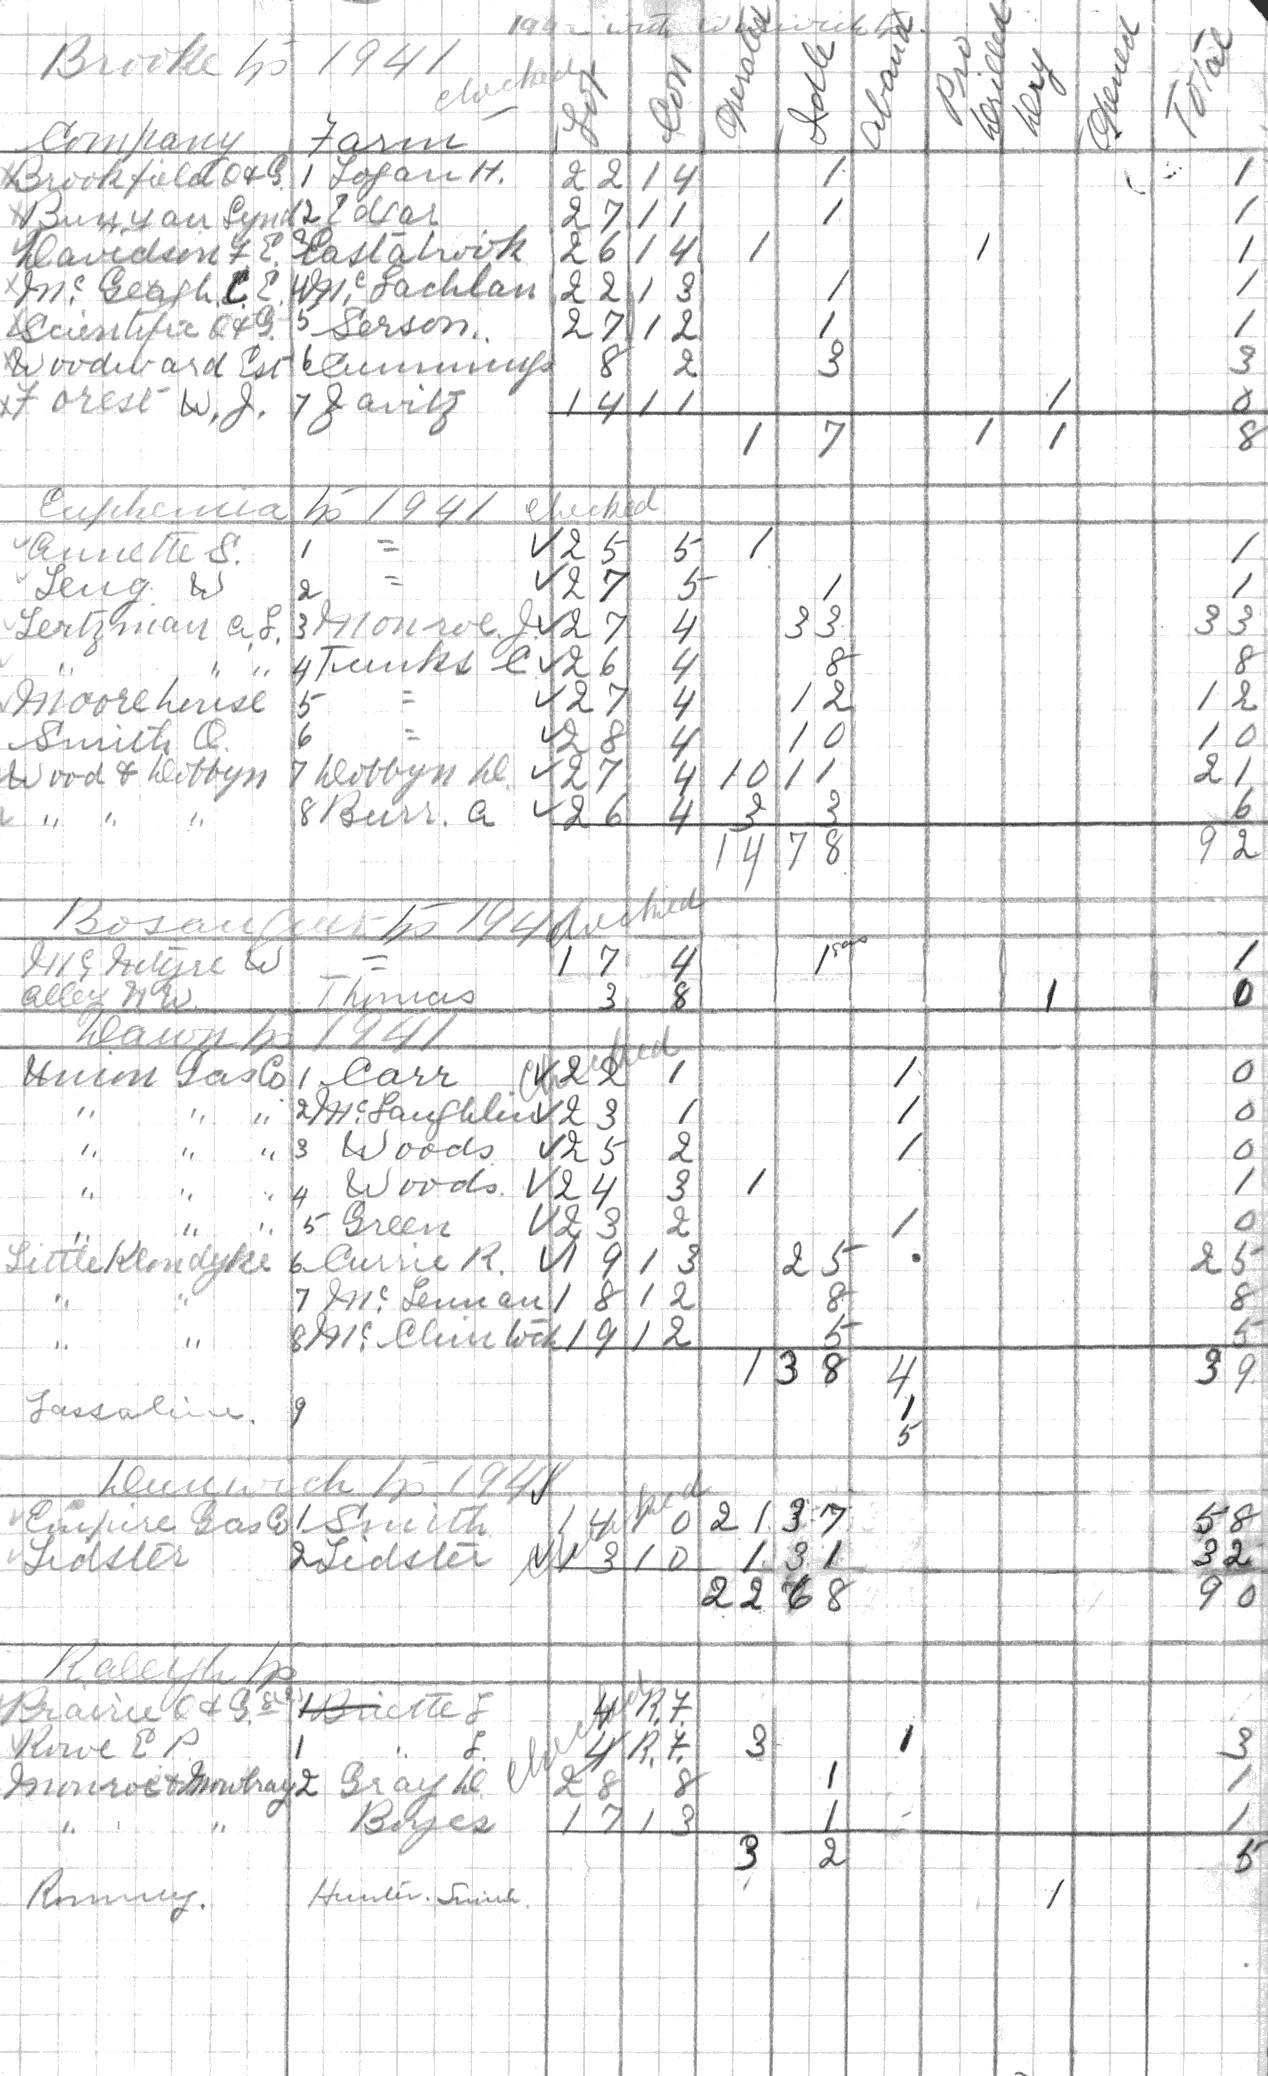 Brooke tp 1941 checked
Company Farm Lot Con Operated Idle Aband Pro Drilled Dry Opened Total
x Brookfield O & G. 1 Logan H. 22 14 1 1
x Bunyan Synd 2 Edgar 27 11 1 1
Davidson F. E. 3 Eastabrook 26 14 1 1 1
x Mc Geagh C. E. 4 Mc Lachlan 22 13 1 1
Scientific O & G. 5 Serson. 27 12 1 1
Woodward Est 6 Cummings 8 2 3 3
x Forest W. J. 7 Zavitz 14 11 1 0
1 7 1 1 8
Euphemia tp 1941 checked
✓ Annette S. 1 = ✓ 25 5 1 1
✓ Leng W 2 = ✓ 27 5 1 1
✓ Lertzman A. L. 3 Monroe. J. ✓ 27 4 33 33
" " " 4 Trunks C ✓ 26 4 8 8
✓ Moorehouse 5 = ✓ 27 4 12 12
Smith O. 6 = ✓ 28 4 10 10
Wood & Dobbyn 7 Dobbyn D. ✓ 27 4 10 11 21
" " " 8 Burr. A ✓ 26 4 3 3 6
14 78 92
Bosanquet tp 1941 checked
Mc Intyre W = 17 4 1 gas 1
Alley N W. Thomas 3 8 1 0
Dawn tp 1941 checked
Union Gas Co 1 Carr ✓ 22 1 1 0
" " " 2 Mc Laughlin ✓ 23 1 1 0
" " " 3 Woods ✓ 25 2 1 0
" " " 4 Woods. ✓ 24 3 1 1
" " " 5 Green ✓ 23 2 1 0
Little Klondyke 6 Currie R. ✓ 19 13 25 25
" " 7 Mc Lennan 18 12 8 8
" " 8 Mc Clintock 19 12 5 5
1 38 4 39
Lassaline. 9 1
5
Dunwich tp 1941 checked
✓ Empire Gas Co 1 Smith 14 10 21 37 58
✓ Lidster 2 Lidster 13 10 1 31 32
22 68 90
Raleigh tp checked
Prairie O & G. 1 L 4 R. 7.
Rowe E P. 1 " L. 4 R. 7. 3 1 3
Monroe & Mowbray 2 Gray D. 28 8 1 1
" " Boyes 17 13 1 1
3 2 5
Romney. Hunter. Smith. 1